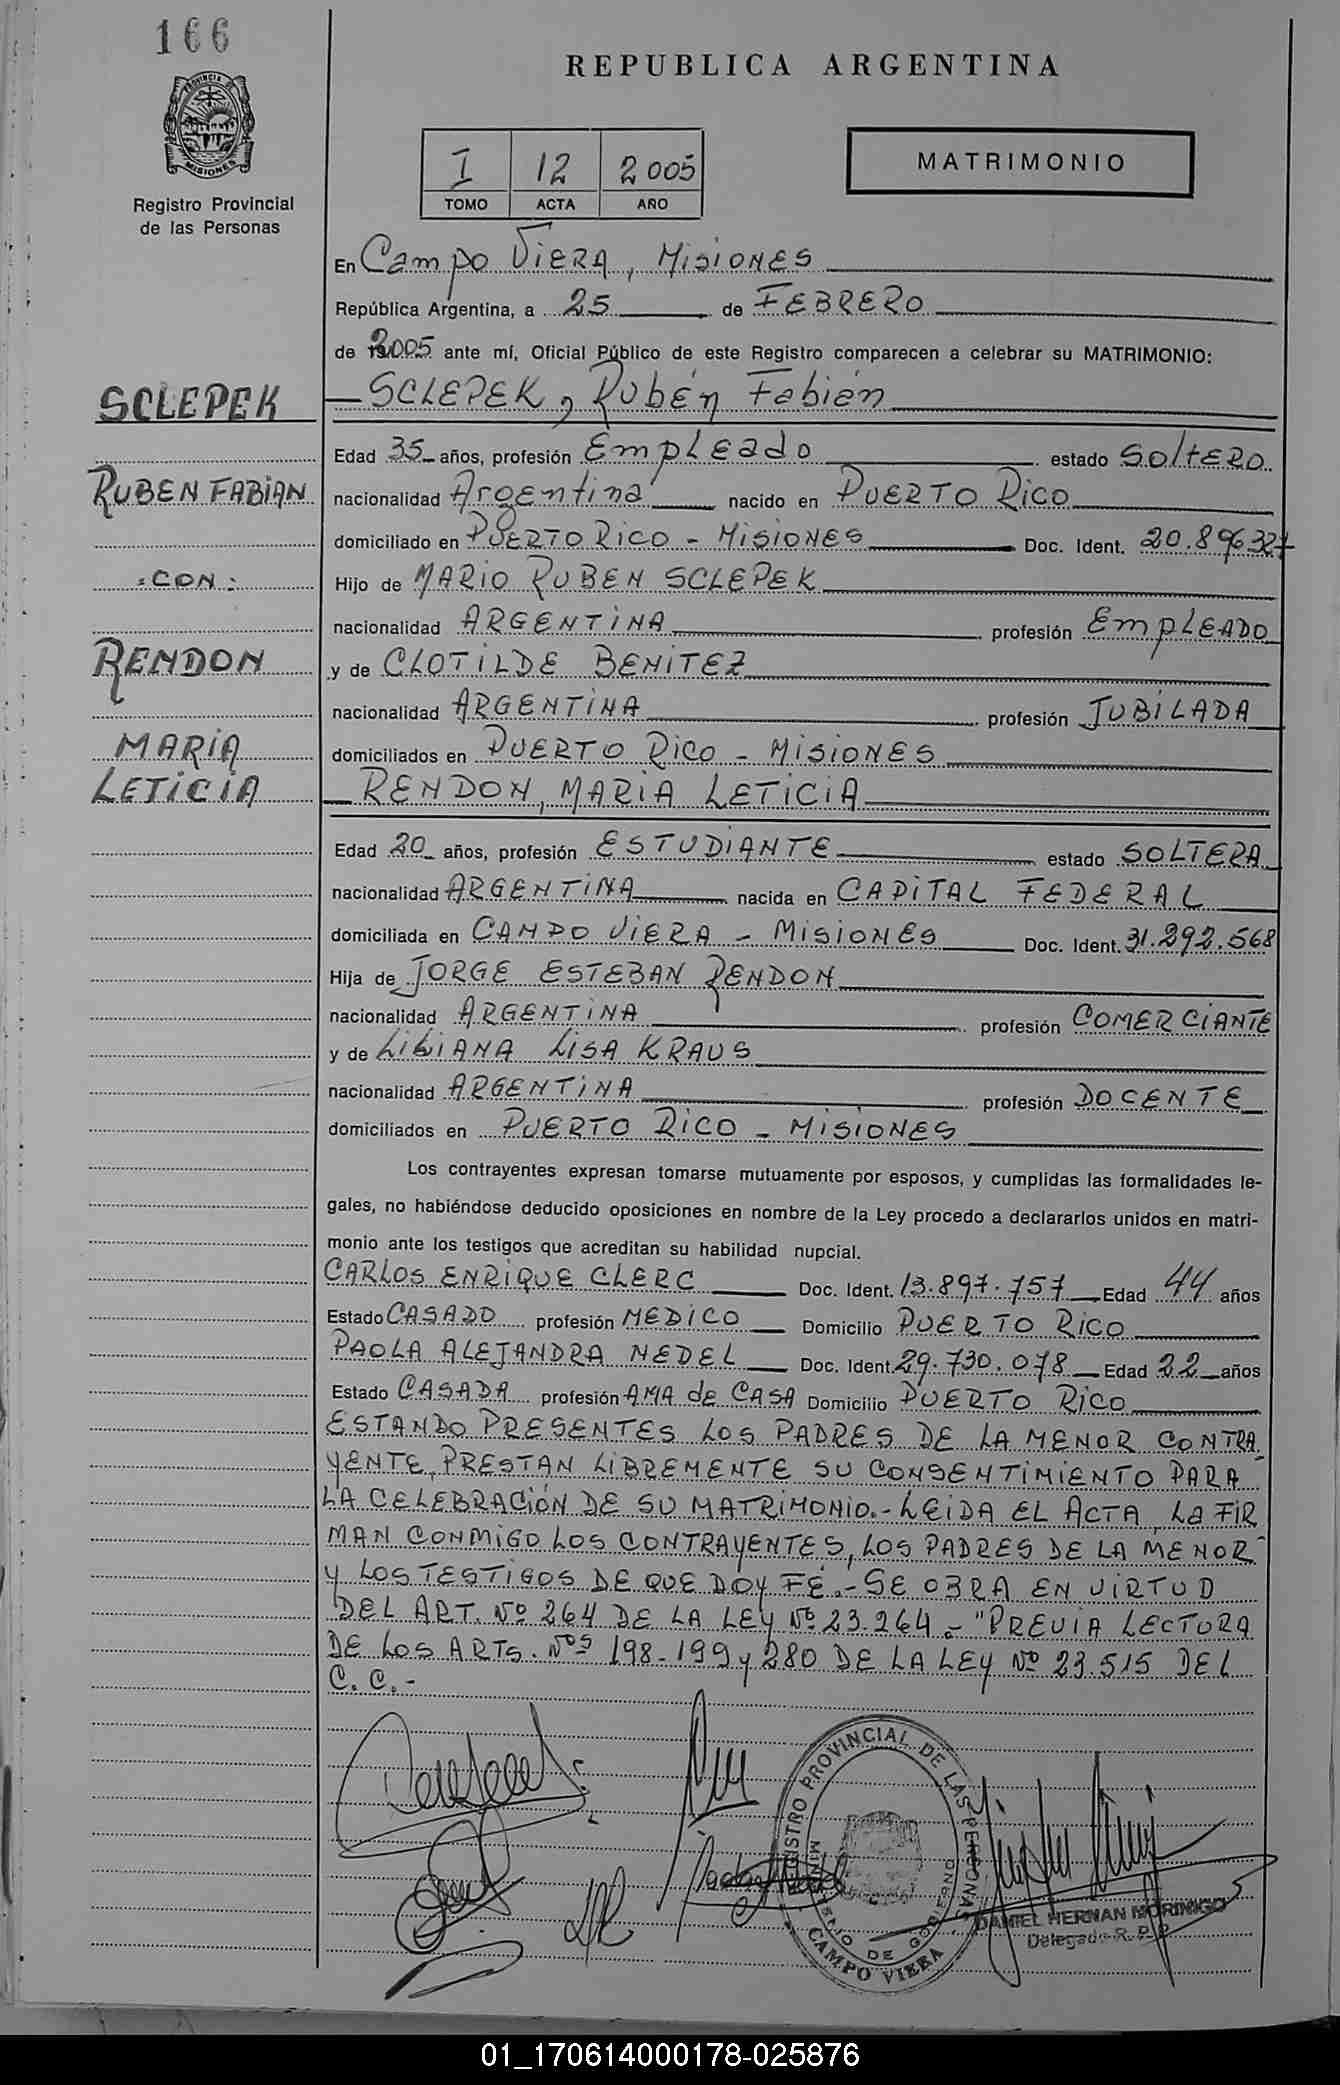 166
PROVINCIA DE
MISIONES
Registro Provincial
de las Personas
REPUBLICA ARGENTINA
I 12 2005
TOMO ACTA AÑO
MATRIMONIO
En Campo Viera, Misiones
República Argentina, a 25 de FEBRERO
de 2005 ante mí, Oficial Público de este Registro comparecen a celebrar su MATRIMONIO:
SCLEPEK
SCLEPEK, Rubén Fabián
Edad 35 años, profesión Empleado estado Soltero
RUBEN FABIAN
nacionalidad Argentina nacido en PUERTO RICO
domiciliado en PUERTO RICO - MISIONES Doc. Ident. 20.896.327
=CON:
Hijo de MARIO RUBEN SCLEPEK
nacionalidad ARGENTINA profesión EMPLEADO
RENDON
y de CLOTILDE BENITEZ
nacionalidad ARGENTINA profesión JUBILADA
MARIA
domiciliados en PUERTO RICO - MISIONES
LETICIA
RENDON, MARIA LETICIA
Edad 20 años, profesión ESTUDIANTE estado SOLTERA
nacionalidad ARGENTINA nacida en CAPITAL FEDERAL
domiciliada en CAMPO VIERA - MISIONES Doc. Ident. 31.292.568
Hija de JORGE ESTEBAN RENDON
nacionalidad ARGENTINA profesión COMERCIANTE
y de LILIANA LISA KRAUS
nacionalidad ARGENTINA profesión DOCENTE
domiciliados en PUERTO RICO - MISIONES
Los contrayentes expresan tomarse mutuamente por esposos, y cumplidas las formalidades le-
gales, no habiéndose deducido oposiciones en nombre de la Ley procedo a declararlos unidos en matri-
monio ante los testigos que acreditan su habilidad nupcial.
CARLOS ENRIQUE CLERC Doc. Ident. 13.897.757 Edad 44 años
Estado CASADO profesión MEDICO Domicilio PUERTO RICO
PAOLA ALEJANDRA NEDEL Doc. Ident. 29.730.078 Edad 22 años
Estado CASADA profesión AMA de CASA Domicilio PUERTO RICO
ESTANDO PRESENTES LOS PADRES DE LA MENOR CONTRA
YENTE, PRESTAN LIBREMENTE SU CONSENTIMIENTO PARA
LA CELEBRACIÓN DE SU MATRIMONIO.- LEIDA EL ACTA, LA FIR
MAN CONMIGO LOS CONTRAYENTES, LOS PADRES DE LA MENOR
Y LOS TESTIGOS DE QUE DOY FÉ.- SE OBRA EN VIRTUD
DEL ART. Nº 264 DE LA LEY Nº 23.264.- "PREVIA LECTURA
DE LOS ARTS. Nºs 198-199 y 280 DE LA LEY Nº 23.515 DEL
C. C.-
REGISTRO PROVINCIAL DE LAS PERSONAS
MINISTERIO DE GOBIERNO
CAMPO VIERA
DANIEL HERNAN MORINIGO
Delegado R. P. P.
01_170614000178-025876